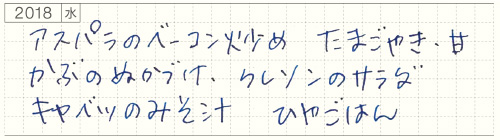 2018 水
アスパラのベーコン炒め たまごやき・甘
かぶのぬかづけ、クレソンのサラダ
キャベツのみそ汁 ひやごはん